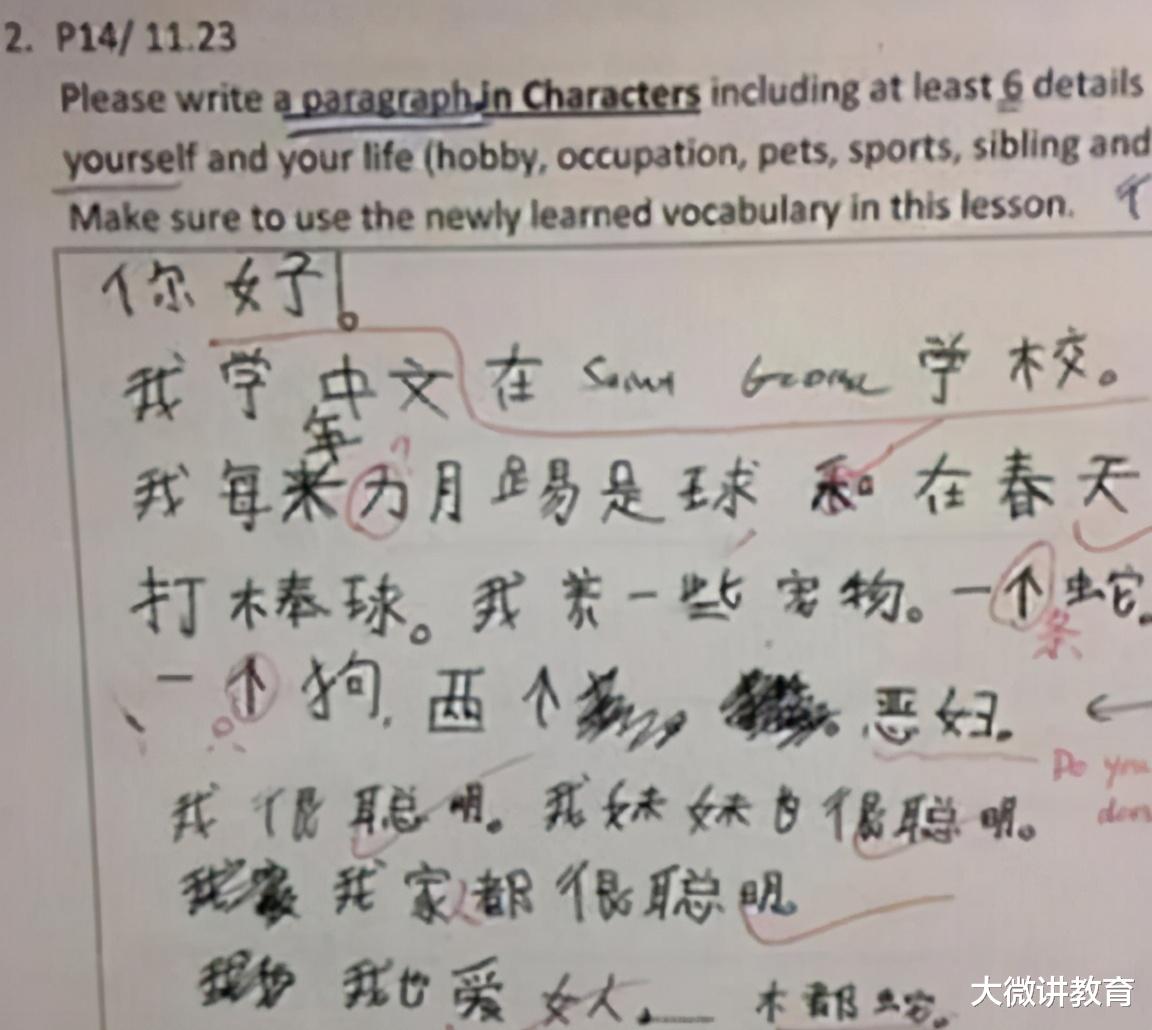 2. P14/ 11.23
Please write a paragraph in Characters including at least 6 details
yourself and your life (hobby, occupation, pets, sports, sibling and
Make sure to use the newly learned vocabulary in this lesson.
你 好!
我 学 中 文 在 学 校。
年
我 每 月 踢 是 球 在 春 天
打 棒 球。 我 养 一 些 宠 物。 一 个 蛇。
条
一 个 狗, 两 个 恶 妇。
Do you
我 很 聪 明。 我 妹 妹 也 很 聪 明。
我 家 人 都 很 聪 明。
我 也 爱 女人。
大微讲教育